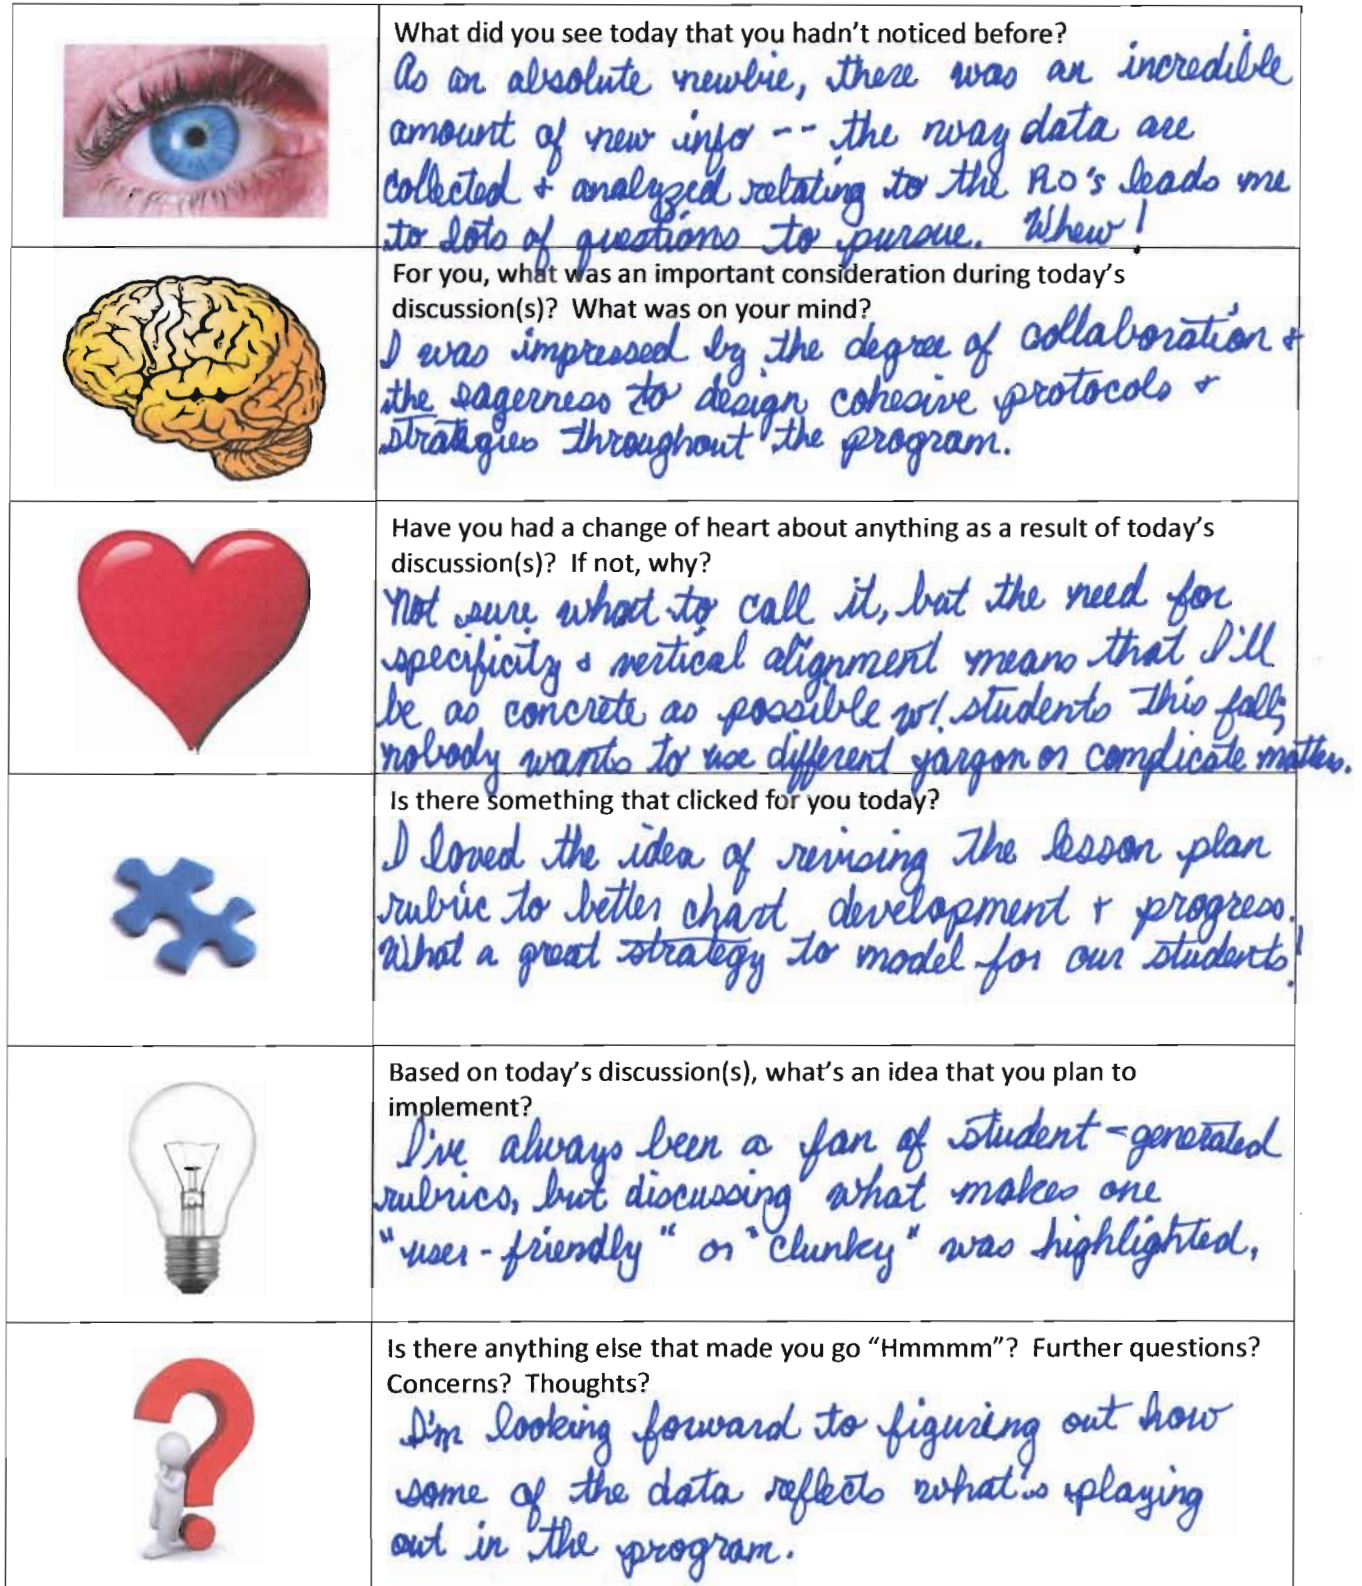 What did you see today that you hadn't noticed before?
As an absolute newbie, there was an incredible
amount of new info -- the way data are
collected & analyzed relating to the RO's leads me
to lots of questions to pursue. Whew!
For you, what was an important consideration during today's
discussion(s)? What was on your mind?
I was impressed by the degree of collaboration &
the eagerness to design cohesive protocols &
strategies throughout the program.
Have you had a change of heart about anything as a result of today's
discussion(s)? If not, why?
Not sure what to call it, but the need for
specificity & vertical alignment means that I'll
be as concrete as possible w/ students this fall;
nobody wants to use different jargon or complicate matters.
Is there something that clicked for you today?
I loved the idea of revising the lesson plan
rubric to better chart development & progress.
What a great strategy to model for our students!
Based on today's discussion(s), what's an idea that you plan to
implement?
I've always been a fan of student-generated
rubrics, but discussing what makes one
"user-friendly" or "clunky" was highlighted.
Is there anything else that made you go "Hmmmm"? Further questions?
Concerns? Thoughts?
I'm looking forward to figuring out how
some of the data reflects what's playing
out in the program.